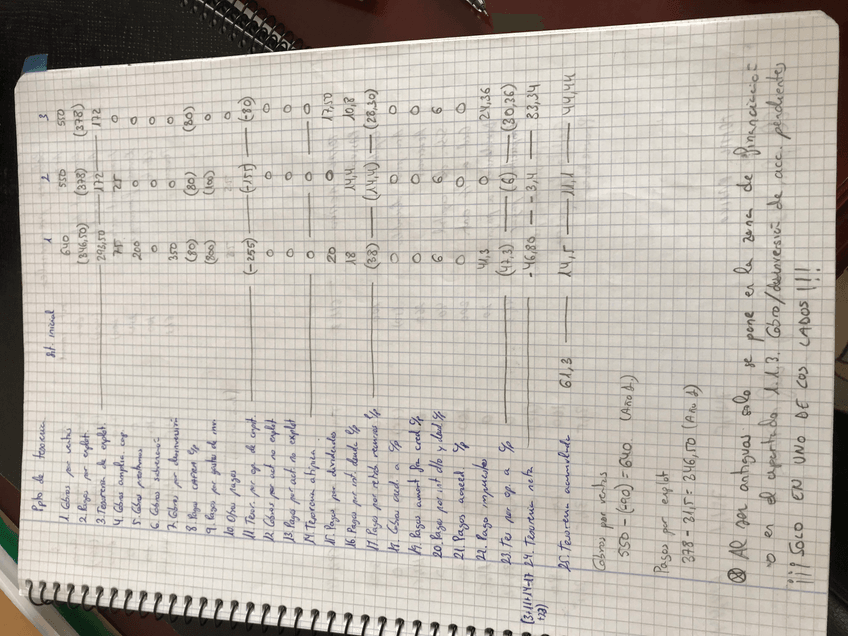 Ppto de tesorería St. inicial 1 2 3
1. Cobros por ventas 640 550 550
2. Pagos por explot. (346,50) (378) (378)
3. Tesorería de explot. 293,50 172 172
4. Cobros amplia. cap 75 25 0
5. Cobro prestamos 200 0 0
6. Cobros subvención 0 0 0
7. Cobros por desinversión 350 0 0
8. Pagos (80) (80) (80)
9. Pagos por (800) (100) 0
10. Otros pagos 0
11. Tesor. por op. de (-255) (-155) (-80)
12. Cobros por act no explot 0 0 0
13. Pagos por act no explot 0 0 0
14. Tesorería atípica 0 0 0
15. Pagos por dividendos 20 0 17,50
16. Pagos por int. deuda l/p 18 14,4 10,8
17. Pagos por l/p (38) (14,4) (28,30)
18. Cobros cred. a c/p 0 0 0
19. Pagos amort fra. cred c/p 0 0 0
20. Pagos por int dto y deud c/p 6 6 6
21. Pagos acreed. c/p 0 0 0
22. Pago impuestos 41,3 0 24,36
23. Tes por op. a c/p (47,3) (6) (30,36)
(3+11+14-17 24. Tesorería neta -46,80 -3,4 33,34
+23)
25. Tesorería acumulada 61,3 14,5 11,1 44,44
Cobros por ventas
550 - (-90) = 640 (Año 1)
Pagos por explot
378 - 31,5 = 346,50 (Año 1)
Al ser antiguas solo se pone en la zona de financiación
o en el apartado 1.1.3. Cobro/desinversión de acc. pendientes
¡¡¡ SOLO EN UNO DE LOS LADOS !!!